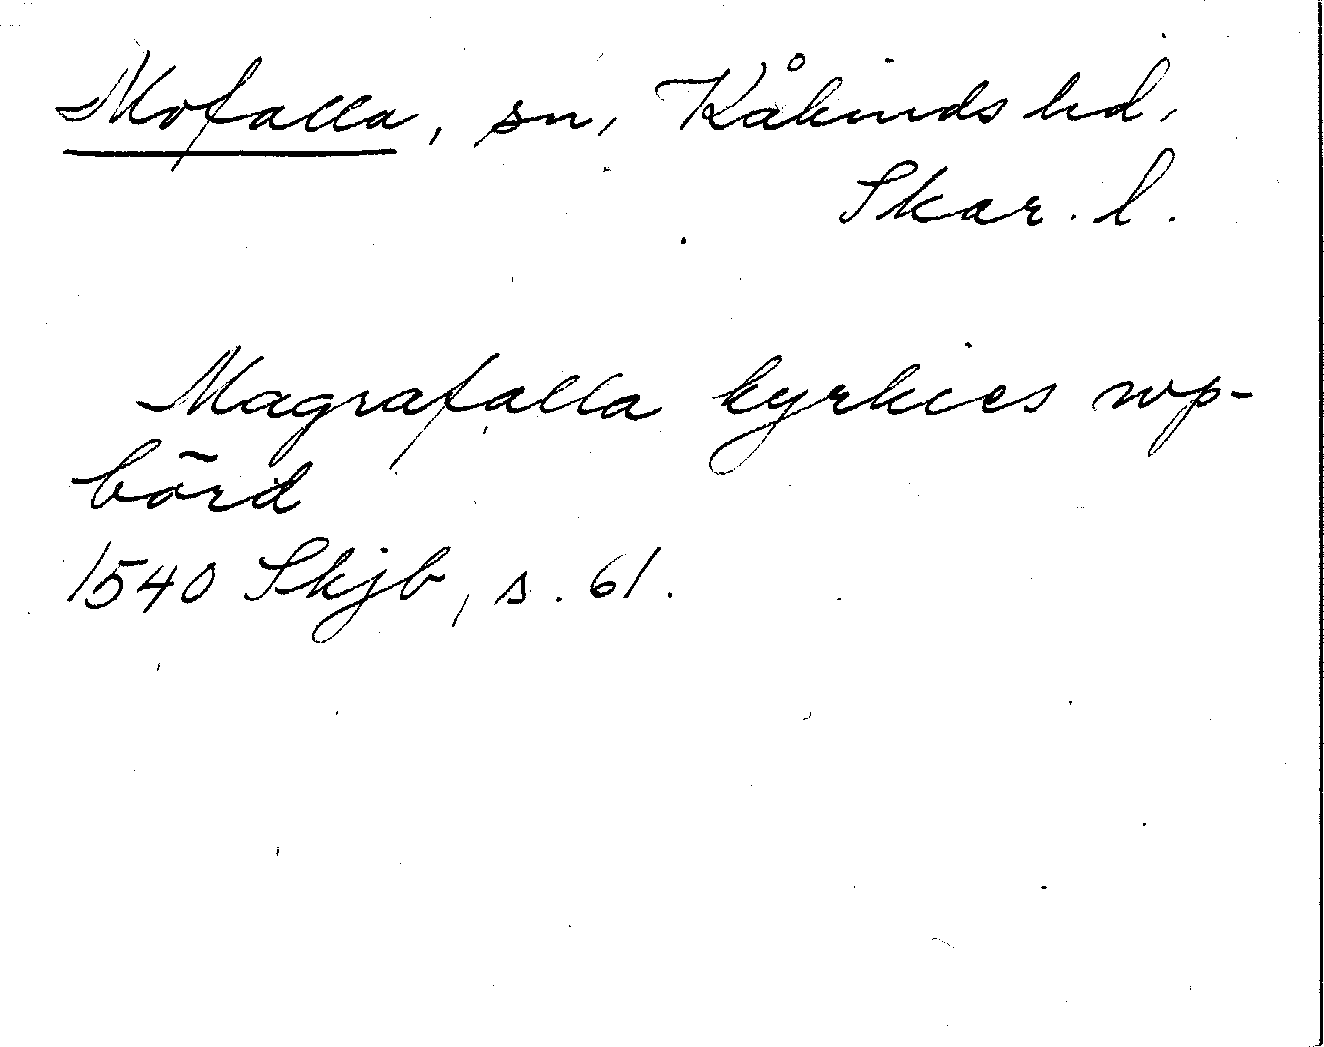 Mofalla, sn, Kåkinds hd,
Skar. l.
Magrafalla kyrkies wp-
börd
1540 Skjb, s. 61.